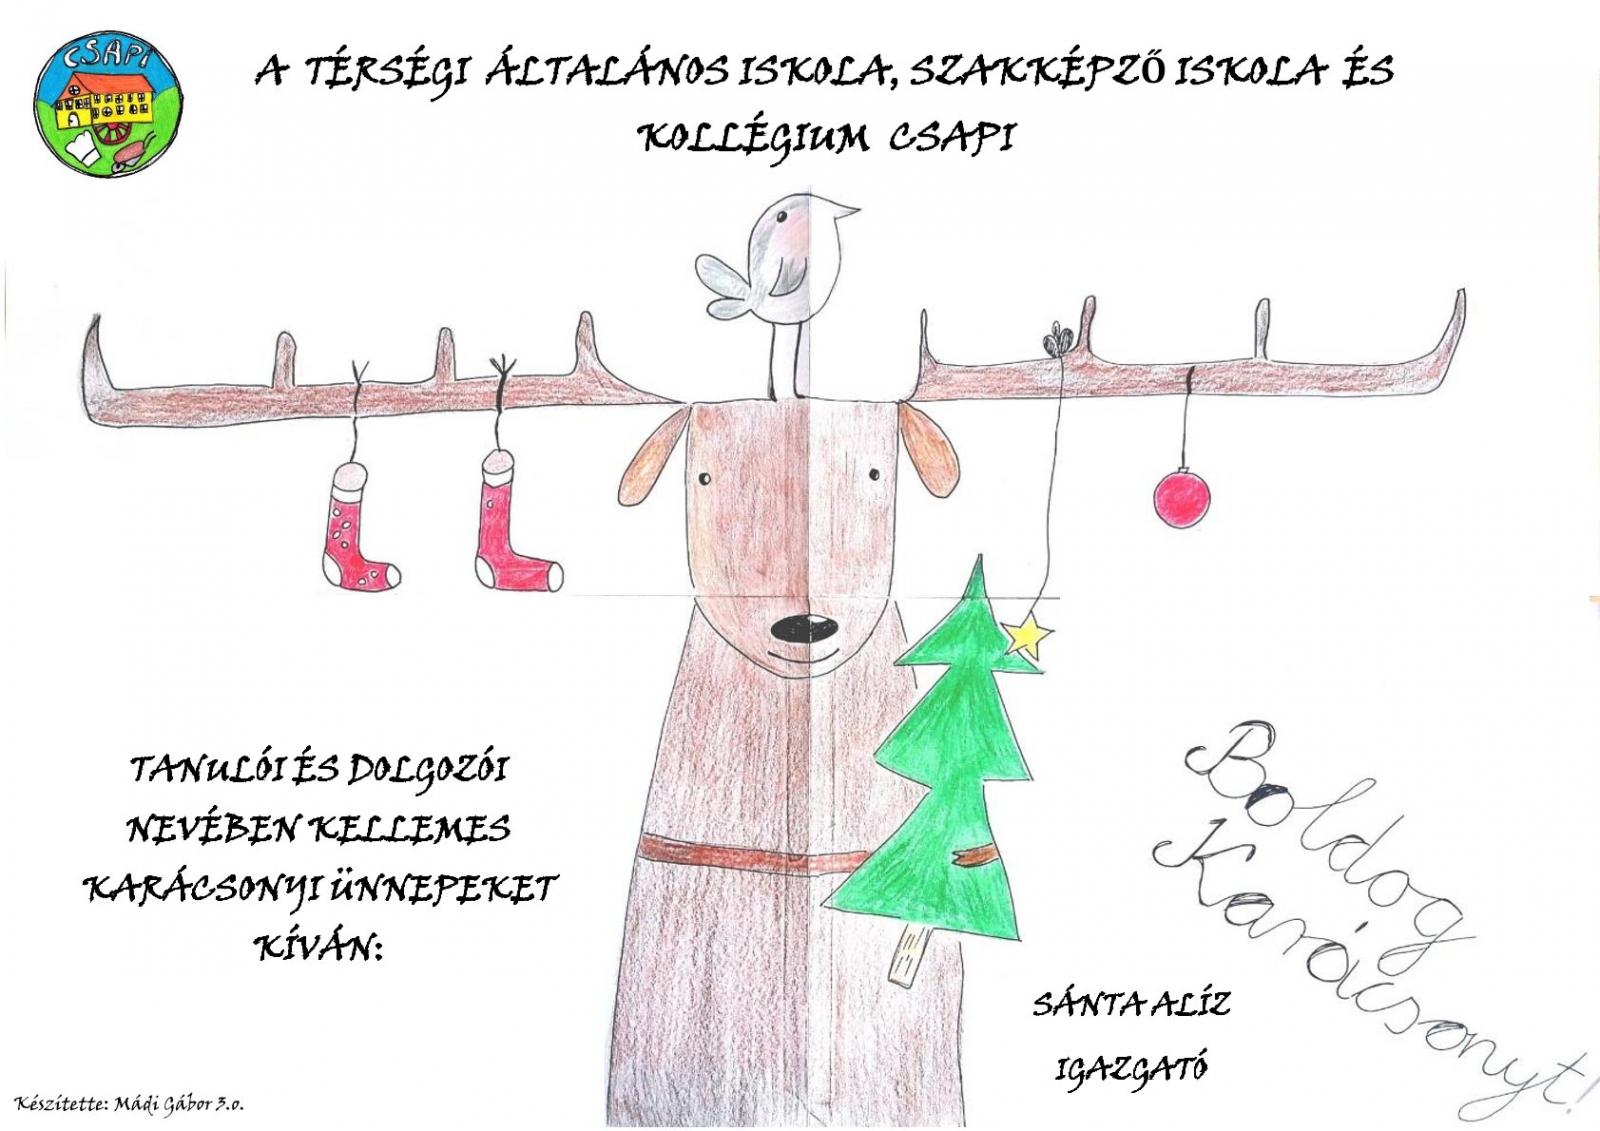 CSAPI
A TÉRSÉGI ÁLTALÁNOS ISKOLA, SZAKKÉPZŐ ISKOLA ÉS
KOLLÉGIUM CSAPI
TANULÓI ÉS DOLGOZÓI
NEVÉBEN KELLEMES
KARÁCSONYI ÜNNEPEKET
KÍVÁN:
Boldog
Karácsonyt!
SÁNTA ALÍZ
IGAZGATÓ
Készítette: Mádi Gábor 3.o.